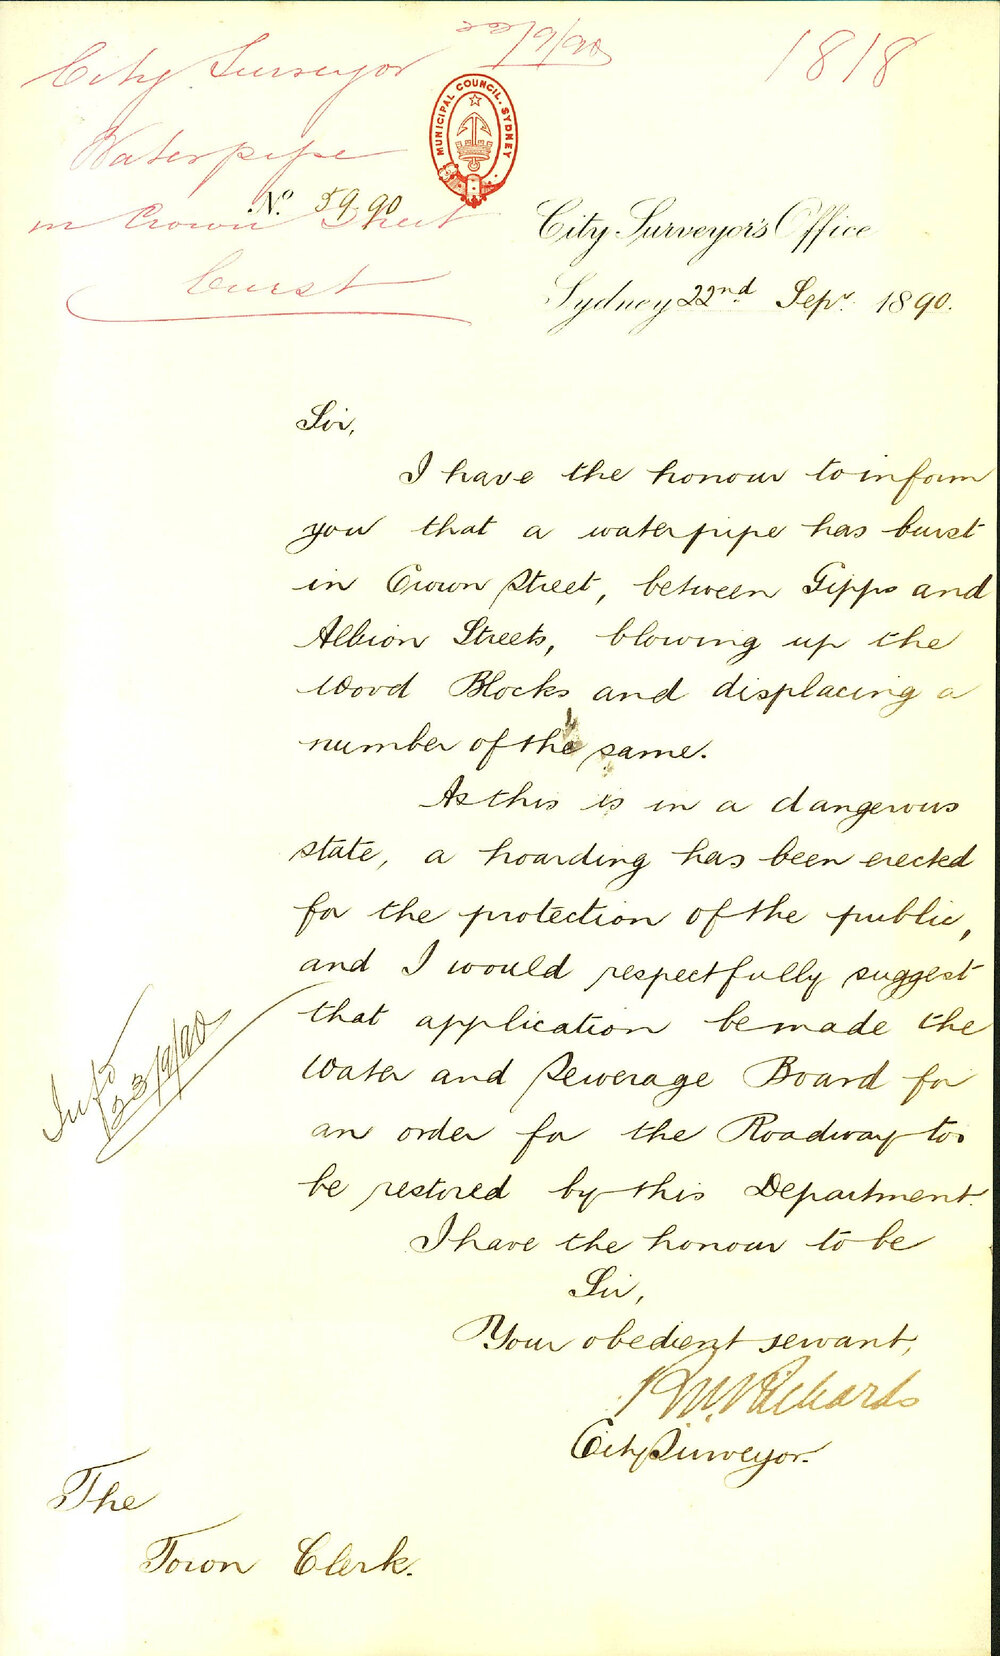 22/9/90
1818
City Surveyor
Waterpipe
in Crown Street
burst
MUNICIPAL COUNCIL. SYDNEY
No. 59.90
City Surveyor's Office
Sydney 22nd Sepr. 1890.
Sir,
I have the honour to inform
you that a waterpipe has burst
in Crown Street, between Gipps and
Albion Streets, blowing up the
Wood Blocks and displacing a
number of the same.
As this is in a dangerous
state, a hoarding has been erected
for the protection of the public,
and I would respectfully suggest
that application be made the
Water and Sewerage Board for
an order for the Roadway to
be restored by this Department.
I have the honour to be
Sir,
Your obedient servant,
Richards
City Surveyor.
23/9/90
The
Town Clerk.